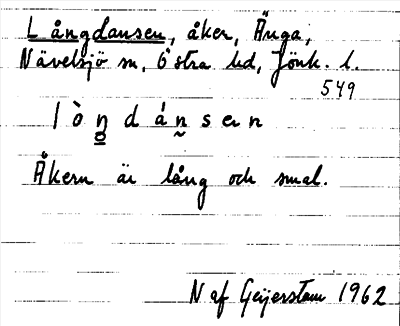 Långdansen, åker, Änga,
Nävelsjö sn, Östra hd, Jönk. l.
549
l ò n̥ d á n̰ s e n
Åkern är lång och smal.
N af Geijerstam 1962